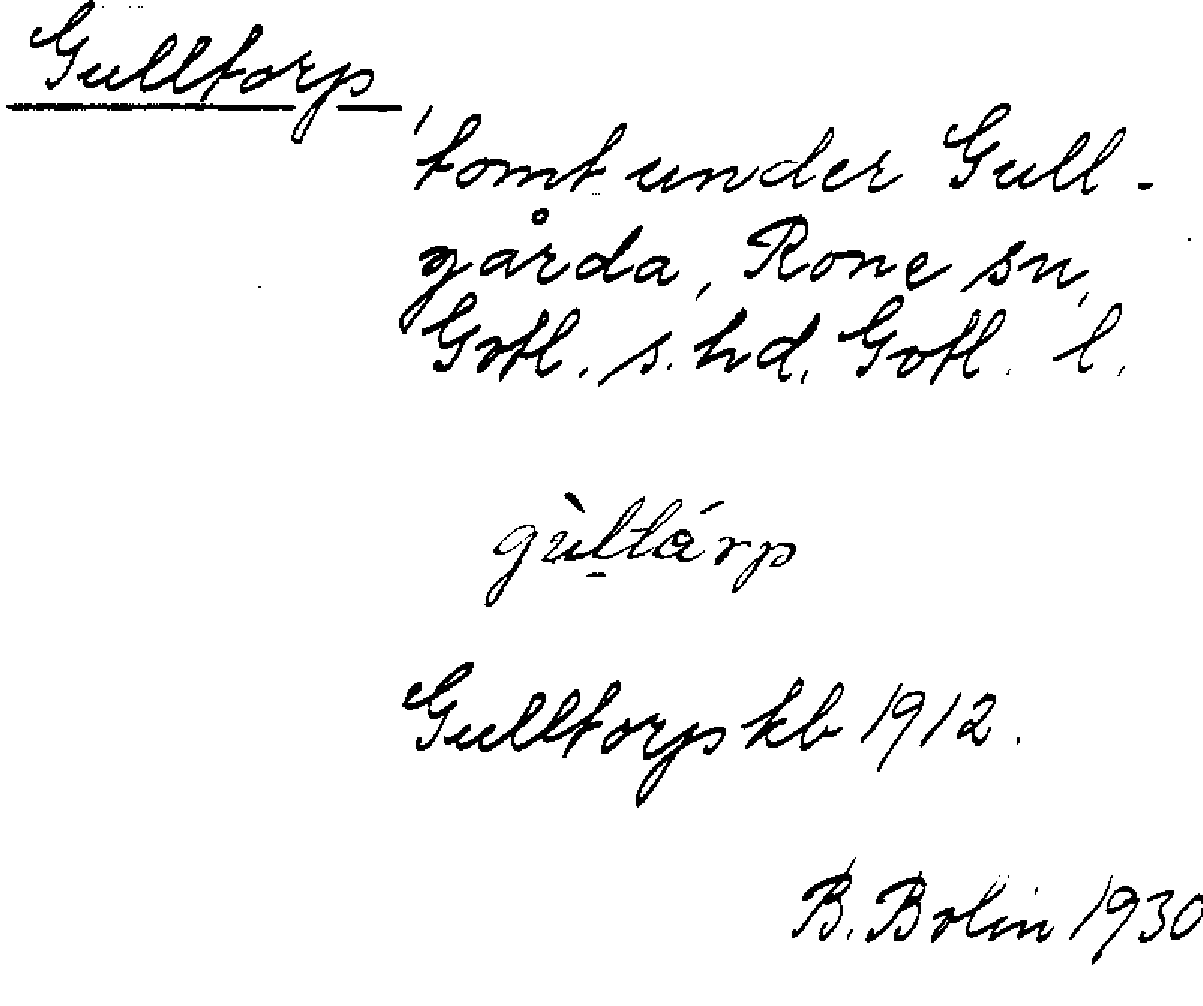 Gulltorp,
tomt under Gull-
gårda, Rone sn,
Gotl. s. hd. Gotl. l.
gùltárp
Gulltorp kb 1912.
B. Bolin 1930